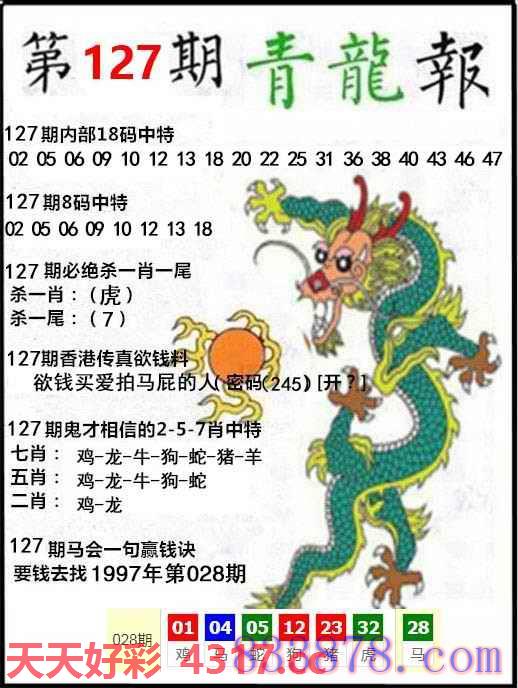 第127期青龍報
127期内部18码中特
02 05 06 09 10 12 13 18 20 22 25 31 36 38 40 43 46 47
127期8码中特
02 05 06 09 10 12 13 18
127期必绝杀一肖一尾
杀一肖：（虎）
杀一尾：（7）
127期香港传真欲钱料
欲钱买爱拍马屁的人(密码(245)[开?]
127期鬼才相信的2-5-7肖中特
七肖： 鸡-龙-牛-狗-蛇-猪-羊
五肖： 鸡-龙-牛-狗-蛇
二肖： 鸡-龙
127期马会一句赢钱诀
要钱去找1997年第028期
028期 01 04 05 12 23 32 28
鸡 马 蛇 狗 猪 虎 马
天天好彩 4317.cc